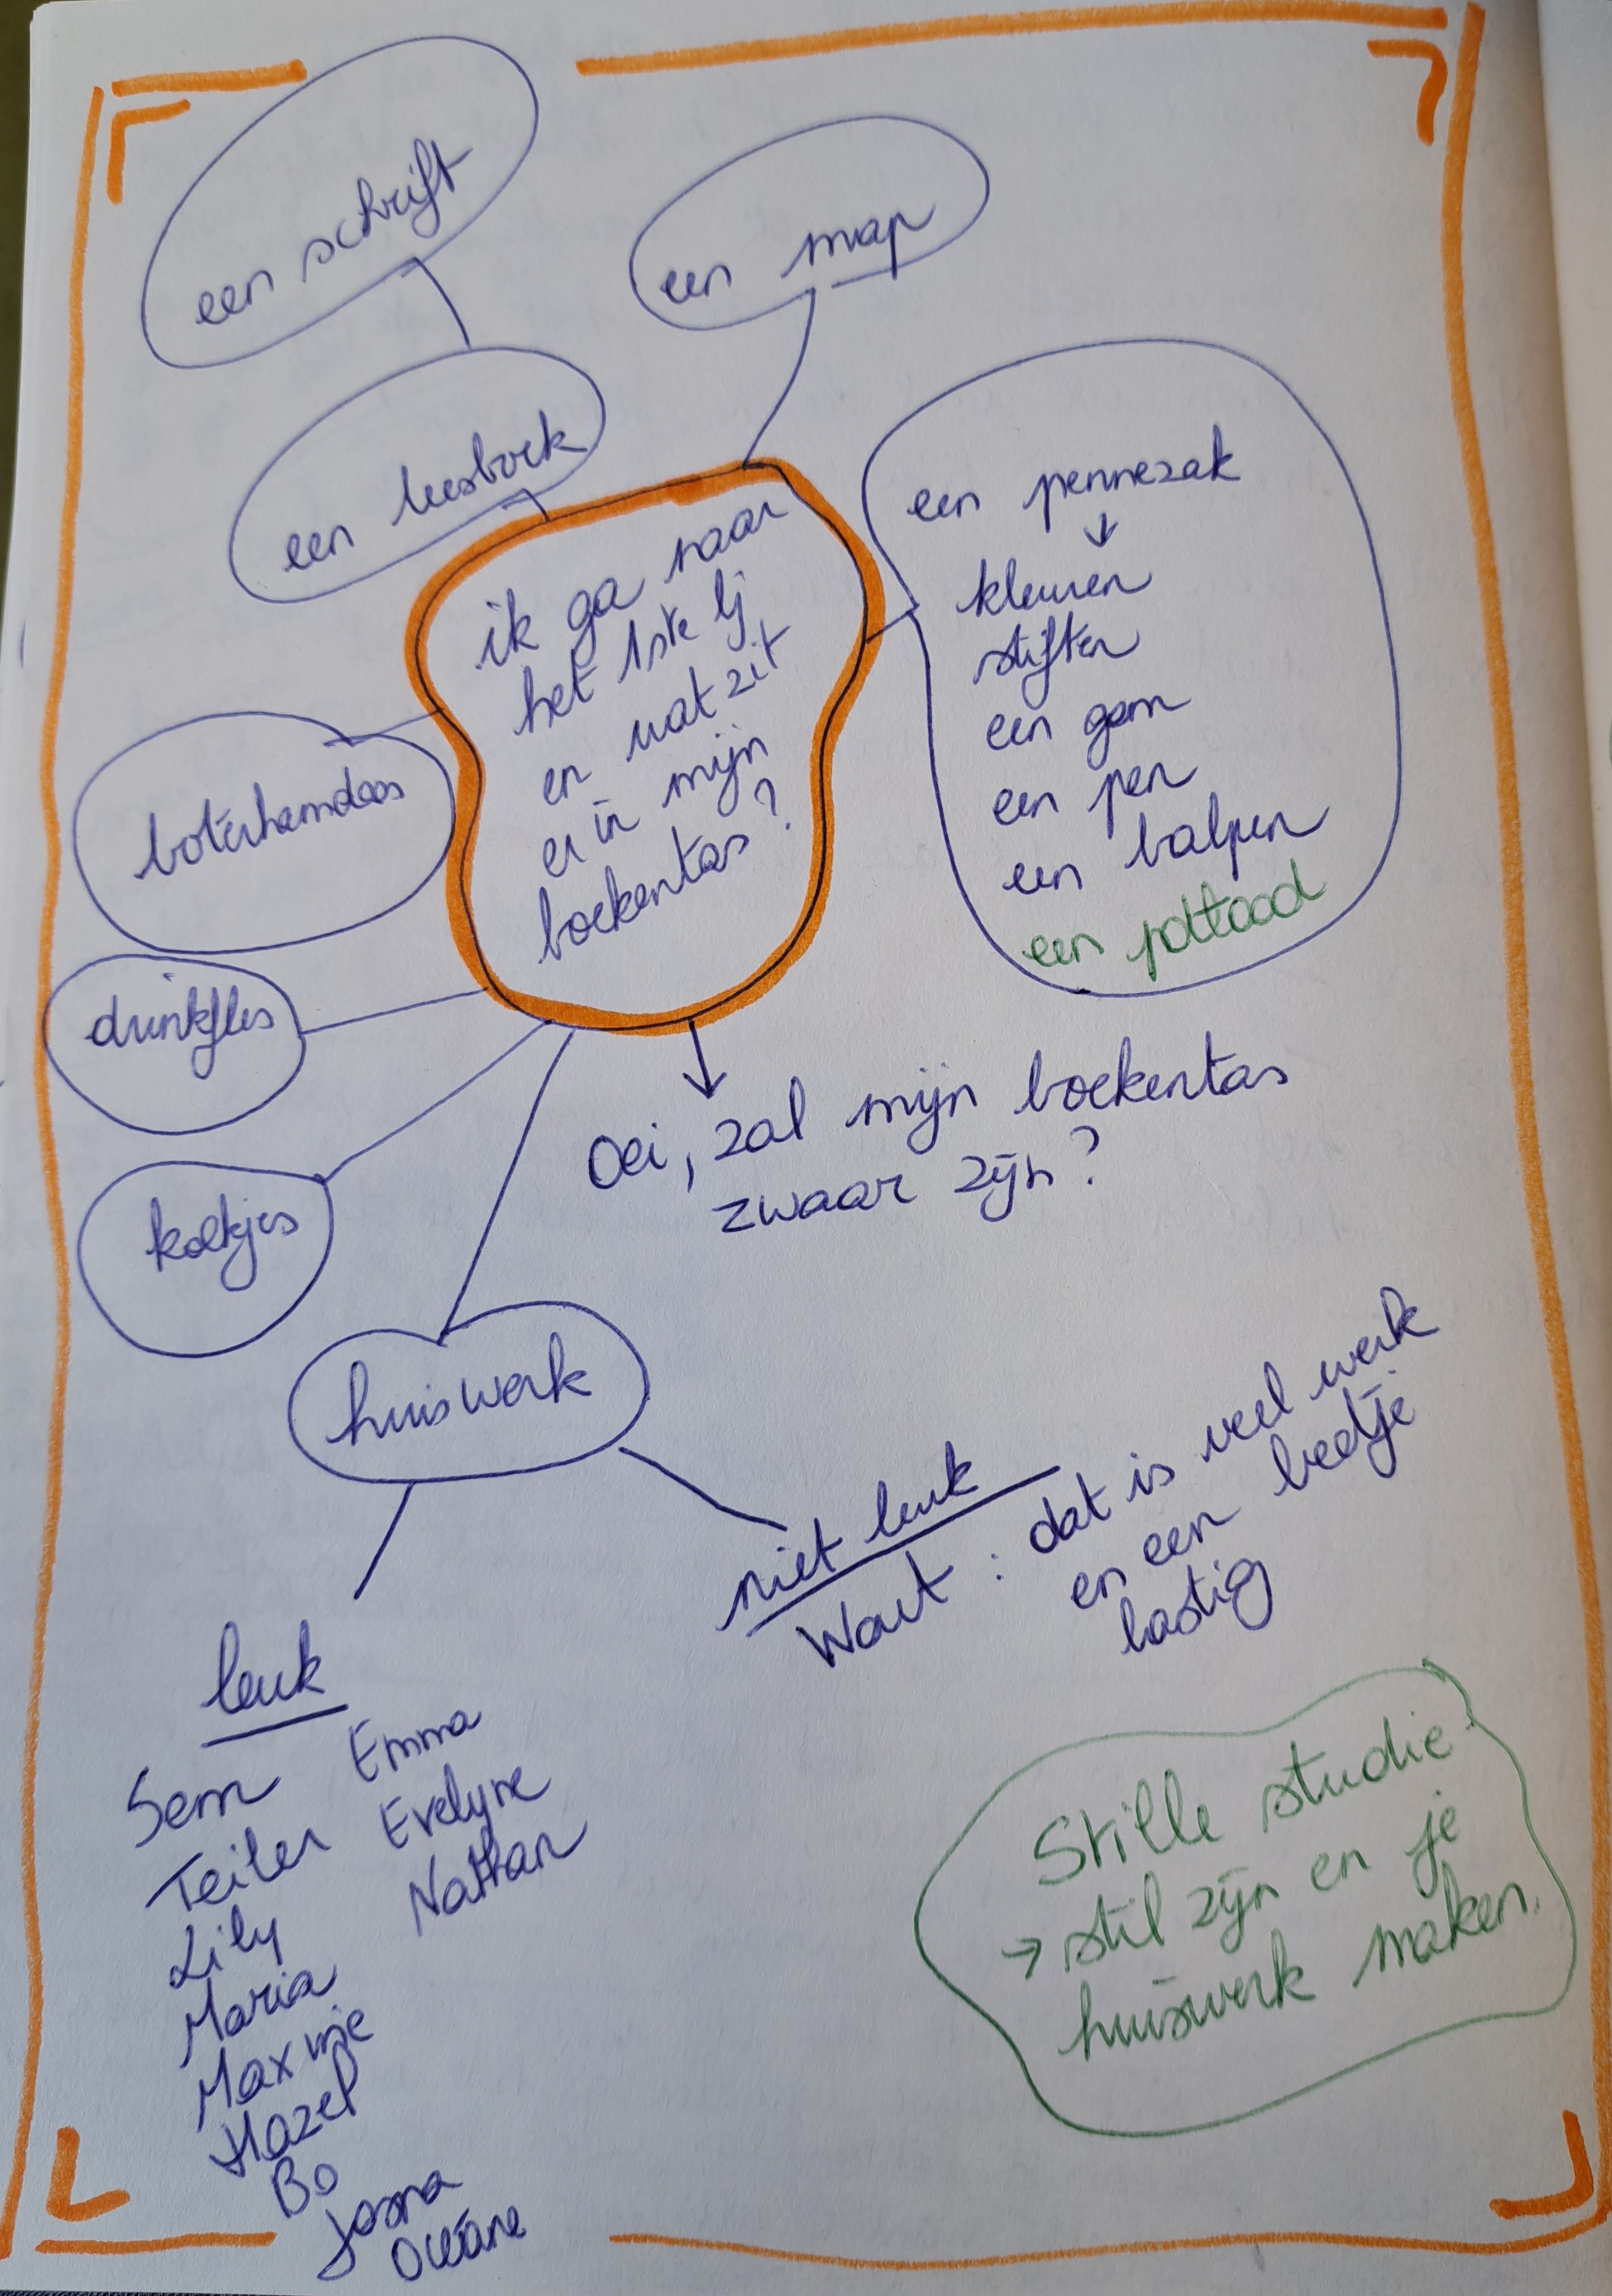 een schrift
een map
een leesboek
ik ga naar
het 1ste lj
en wat zit
er in mijn
boekentas?
een pennezak
↓
kleuren
stiften
een gom
een pen
een balpen
een potlood
boterhamdoos
drinkfles
koekjes
Oei, zal mijn boekentas
zwaar zijn?
huiswerk
niet leuk
Want : dat is veel werk
en een beetje
lastig
leuk
Sem
Teiler
Lily
Maria
Maxime
Hazel
Bo
Jasna
Océane
Emma
Evelyne
Nathan
Stille studie
→ stil zijn en je
huiswerk maken.